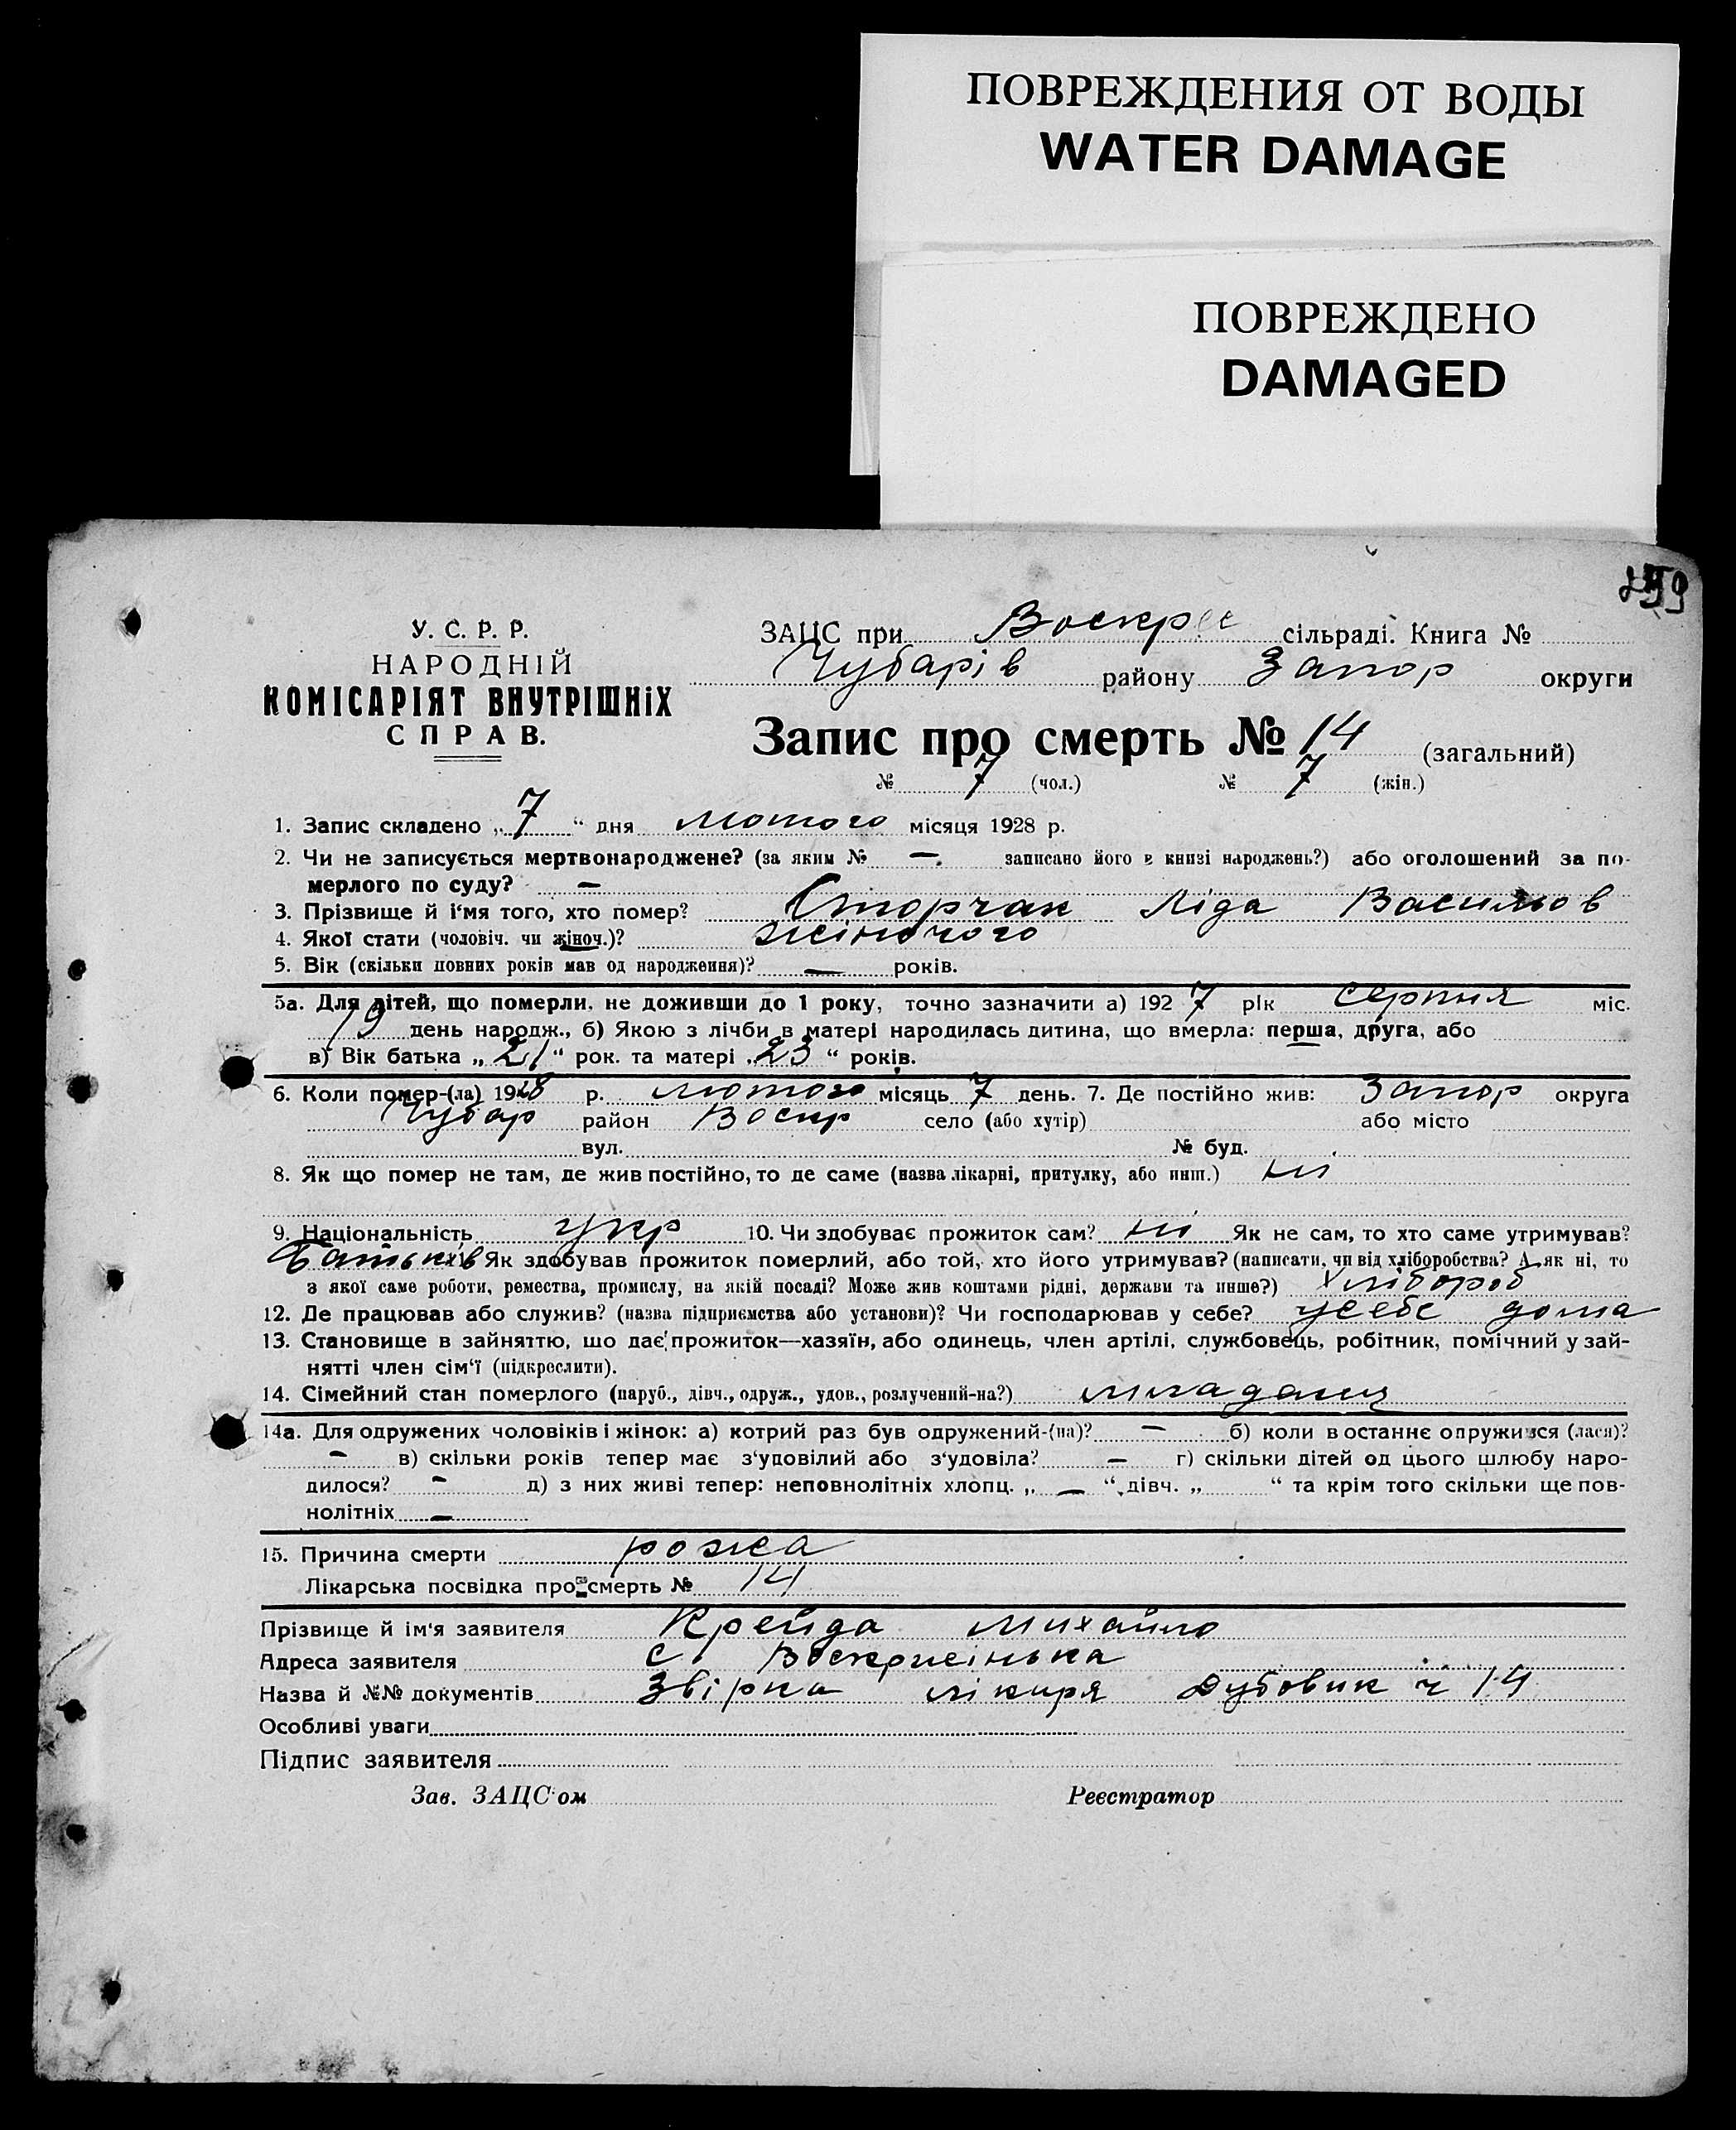 ПОВРЕЖДЕНИЯ ОТ ВОДЫ
WATER DAMAGE
ПОВРЕЖДЕНО
DAMAGED
У. С. Р. Р.
НАРОДНІЙ
КОМІСАРІЯТ ВНУТРІШНІХ
СПРАВ.
ЗАЦС при Воскрес сільраді. Книга №
Чубарів району Запор округи
Запис про смерть № 14 (загальний)
№ 7 (чол.) № 7 (жін.)
1. Запис складено „ 7 “ дня лютого місяця 1928 р.
2. Чи не записується мертвонароджене? (за яким № — записано його в книзі народжень?) або оголошений за по-
мерлого по суду? —
3. Прізвище й і'мя того, хто помер? Сторчак Ліда Васильов
4. Якої стати (чоловіч. чи жіноч.)? жіночого
5. Вік (скільки повних років мав од народження)? — років.
5а. Для дітей, що померли, не доживши до 1 року, точно зазначити а) 1927 рік серпня міс.
19 день народж., б) Якою з лічби в матері народилась дитина, що вмерла: перша, друга, або
в) Вік батька „ 21 “ рок. та матері „ 23 “ років.
6. Коли помер-(ла) 1928 р. лютого місяць 7 день. 7. Де постійно жив: Запор округа
Чубар район Воскр село (або хутір) або місто
вул. № буд.
8. Як що помер не там, де жив постійно, то де саме (назва лікарні, притулку, або инш.) ні
9. Національність укр 10. Чи здобуває прожиток сам? ні Як не сам, то хто саме утримував?
Батьків Як здобував прожиток померлий, або той, хто його утримував? (написати, чи від хліборобства? А як ні, то
з якої саме роботи, ремества, промислу, на якій посаді? Може жив коштами рідні, держави та инше?) хлібороб
12. Де працював або служив? (назва підприємства або установи)? Чи господарював у себе? усебе дома
13. Становище в зайняттю, що дає прожиток—хазяїн, або одинець, член артілі, службовець, робітник, помічний у зай-
нятті член сім'ї (підкреслити).
14. Сімейний стан померлого (паруб., дівч., одруж., удов., розлучений-на?) младенц
14а. Для одружених чоловіків і жінок: а) котрий раз був одружений-(на)? — б) коли в останнє одружився (лася)?
— в) скільки років тепер має з'удовілий або з'удовіла? — г) скільки дітей од цього шлюбу наро-
дилося? — д) з них живі тепер: неповнолітніх хлопц. „ — “, дівч. „ “ та крім того скільки ще пов-
нолітніх —
15. Причина смерти рожа
Лікарська посвідка про смерть № 14
Прізвище й ім'я заявителя Крейда Михайло
Адреса заявителя с. Воскрисінька
Назва й №№ документів Звірка лікаря Дубовик ч 14
Особливі уваги
Підпис заявителя
Зав. ЗАЦС'ом Реєстратор